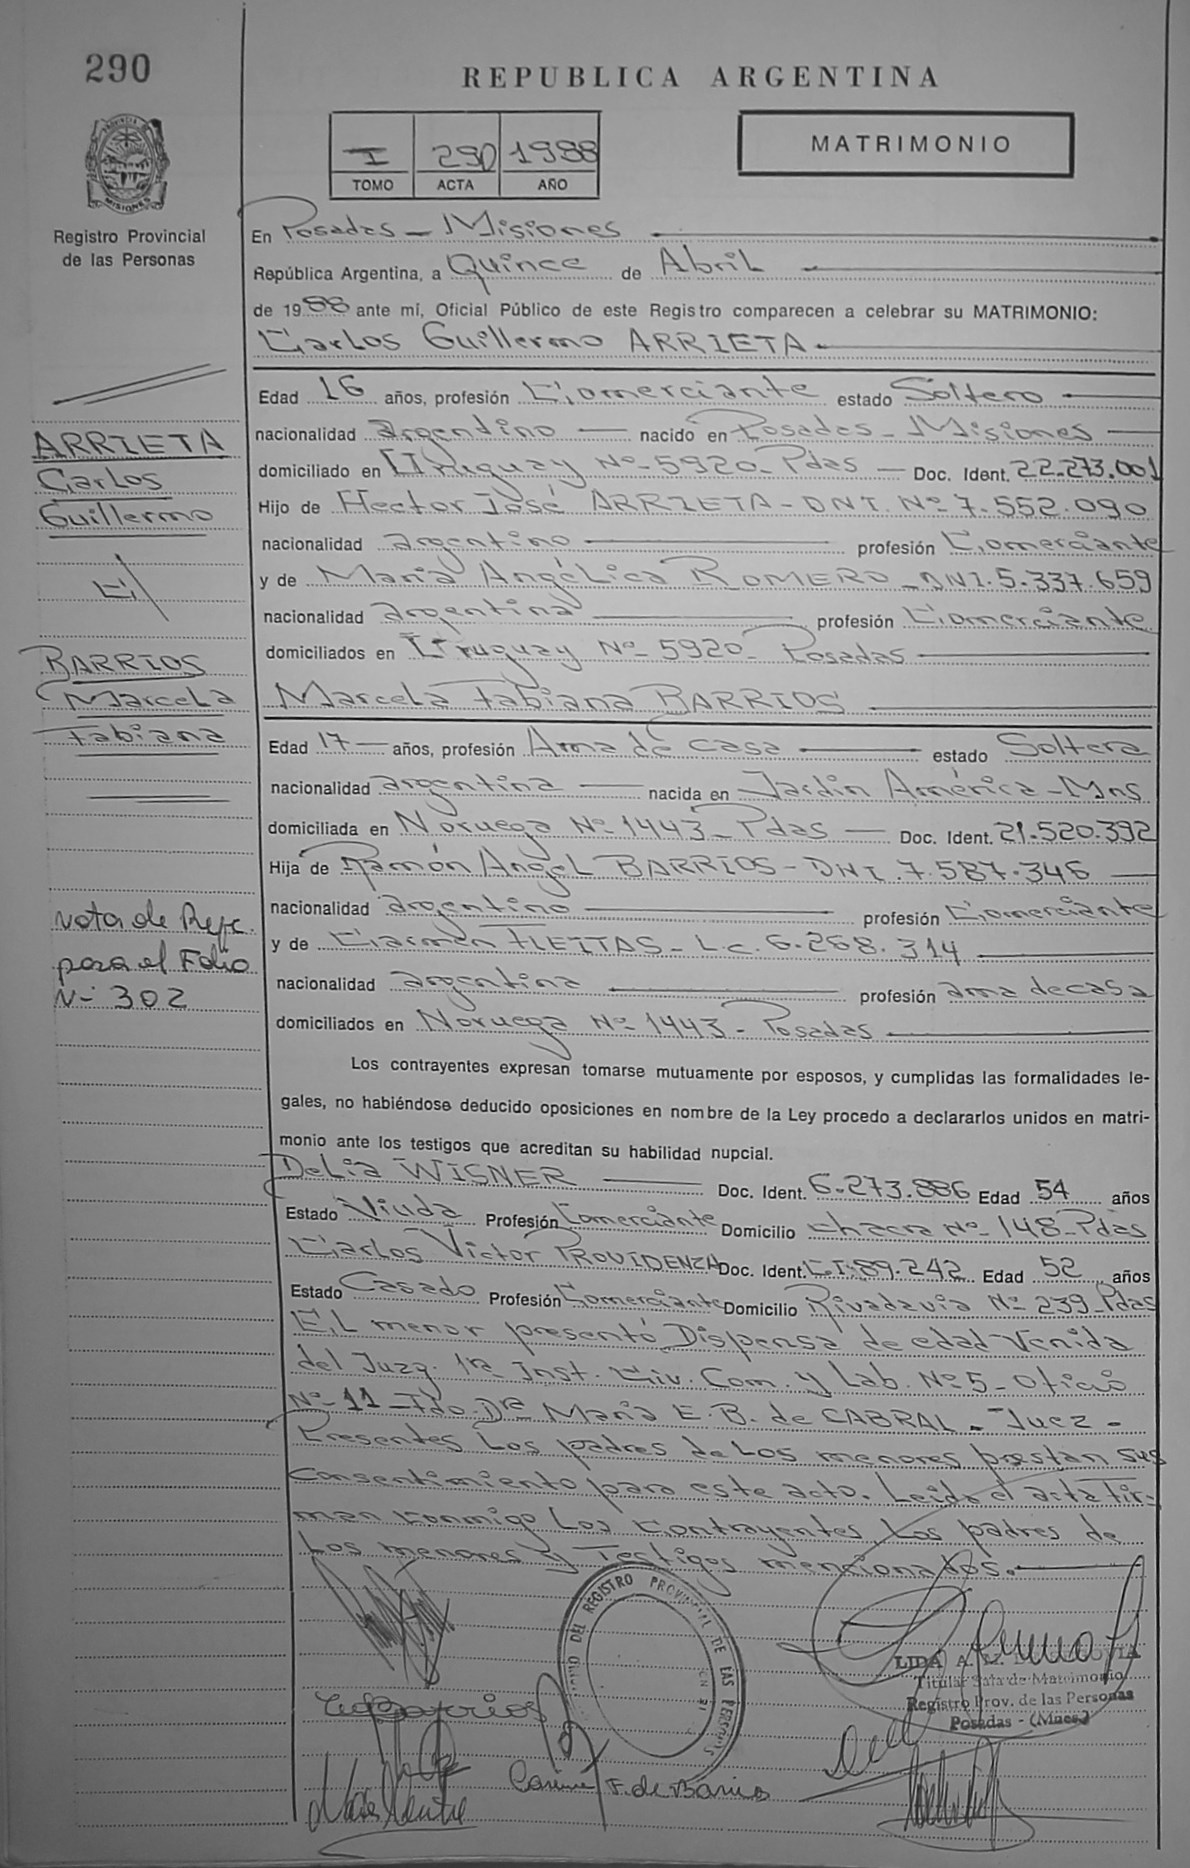 290
REPUBLICA ARGENTINA
I 290 1988
TOMO ACTA AÑO
MATRIMONIO
PROVINCIA DE MISIONES
Registro Provincial
de las Personas
En Posadas - Misiones
República Argentina, a Quince de Abril
de 1988 ante mí, Oficial Público de este Registro comparecen a celebrar su MATRIMONIO:
Carlos Guillermo ARRIETA
Edad 16 años, profesión Comerciante estado Soltero
nacionalidad argentino nacido en Posadas - Misiones
domiciliado en Uruguay Nº 5920 - Pdas Doc. Ident. 22.273.001
Hijo de Hector José ARRIETA - DNI. Nº 7.552.090
nacionalidad argentino profesión Comerciante
y de Maria Angélica ROMERO - DNI. 5.337.659
nacionalidad argentina profesión Comerciante
domiciliados en Uruguay Nº 5920 - Posadas
Marcela Fabiana BARRIOS
Edad 17 años, profesión Ama de casa estado Soltera
nacionalidad argentina nacida en Jardin América - Mns
domiciliada en Noruega Nº 1443 - Pdas Doc. Ident. 21.520.392
Hija de Ramón Angel BARRIOS - DNI. 7.587.346
nacionalidad argentino profesión Comerciante
y de Carmen FLEITAS - L.c. 6.268.314
nacionalidad argentina profesión ama de casa
domiciliados en Noruega Nº 1443 - Posadas
ARRIETA
Carlos
Guillermo
C/
BARRIOS
Marcela
Fabiana
Nota de Refc.
para el Folio
Nº 302
Los contrayentes expresan tomarse mutuamente por esposos, y cumplidas las formalidades le-
gales, no habiéndose deducido oposiciones en nombre de la Ley procedo a declararlos unidos en matri-
monio ante los testigos que acreditan su habilidad nupcial.
Delia WISNER Doc. Ident. 6.273.886 Edad 54 años
Estado Viuda Profesión Comerciante Domicilio Chacra Nº 148 - Pdas
Carlos Victor PROVIDENZA Doc. Ident. C.I. 89.242 Edad 52 años
Estado Casado Profesión Comerciante Domicilio Rivadavia Nº 239 - Pdas
El menor presentó Dispensa de edad - Venida
del Juzg. 1ra Inst. Civ. Com. y Lab. Nº 5 - Oficio
Nº 11 - Fdo. Dra Maria E. B. de CABRAL - Juez -
Presentes Los padres de Los menores prestan sus
consentimiento para este acto. Leida el acta fir-
man conmigo Los contrayentes Los padres de
Los menores y Testigos mencionados.
DEL REGISTRO PROVINCIAL DE LAS PERSONAS
LIDA A.
Titular Sala de Matrimonio
Registro Prov. de las Personas
Posadas - (Mnes.)
Barrios
Carmen F. de Barrios